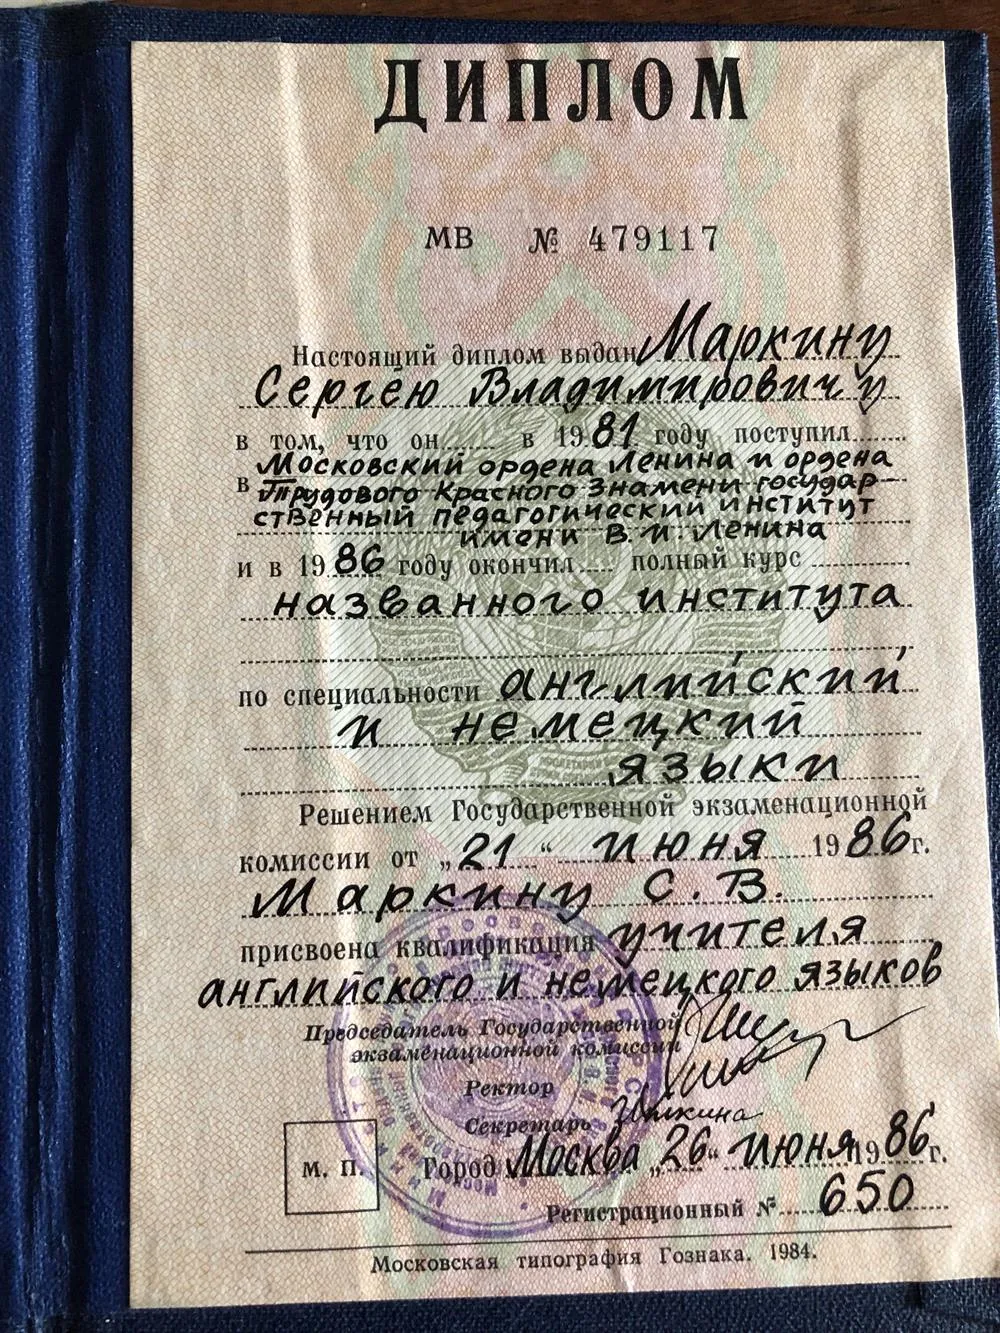 ДИПЛОМ
МВ № 479117
Настоящий диплом выдан Маркину
Сергею Владимировичу
в том, что он в 1981 году поступил
Московский ордена Ленина и ордена
в Трудового Красного Знамени государ-
ственный педагогический институт
имени В.И. Ленина
и в 1986 году окончил полный курс
названного института
по специальности английский
и немецкий
языки
Решением Государственной экзаменационной
комиссии от „21“ июня 1986г.
Маркину С. В.
присвоена квалификация учителя
английского и немецкого языков
Председатель Государственной
экзаменационной комиссии
Ректор
Секретарь
М. П. Город Москва „26“ июня 1986г.
Регистрационный № 650
Московская типография Гознака. 1984.